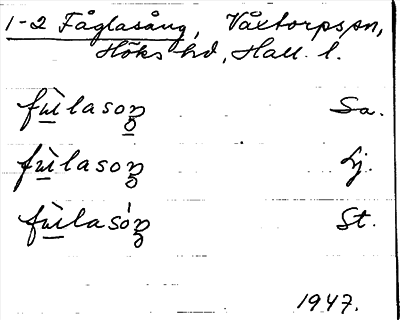 1-2 Fåglasång, Våxtorps sn,
Höks hd, Hall. l.
fù̲lasoŋ̲ Sa.
fù̲lasoŋ Lj.
fù̲lasóŋ St.
1947.